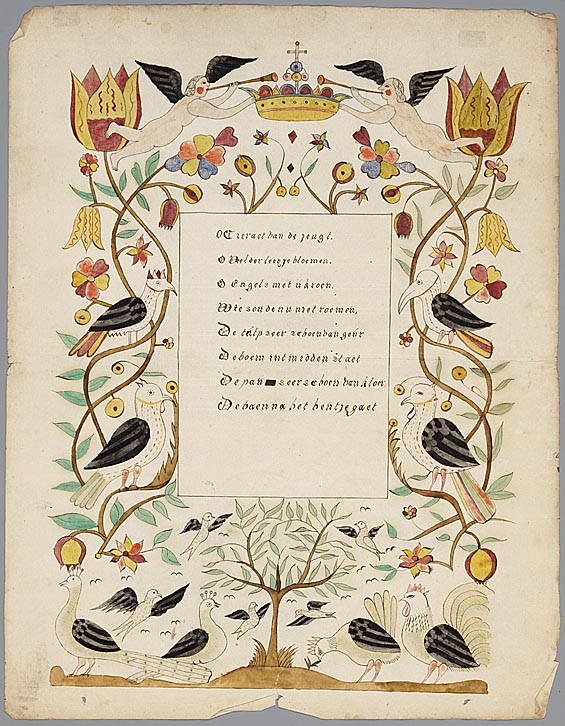 O Cieraet van de jeugt.
O Velderleeŋe bloemen,
O Engels met ù kroon,
Wie zou de nu niet roemen,
De tùlp zeer schoen van geùr
De boem int midden staet
De pan zeer schoen van
De haen na het hentje gaet